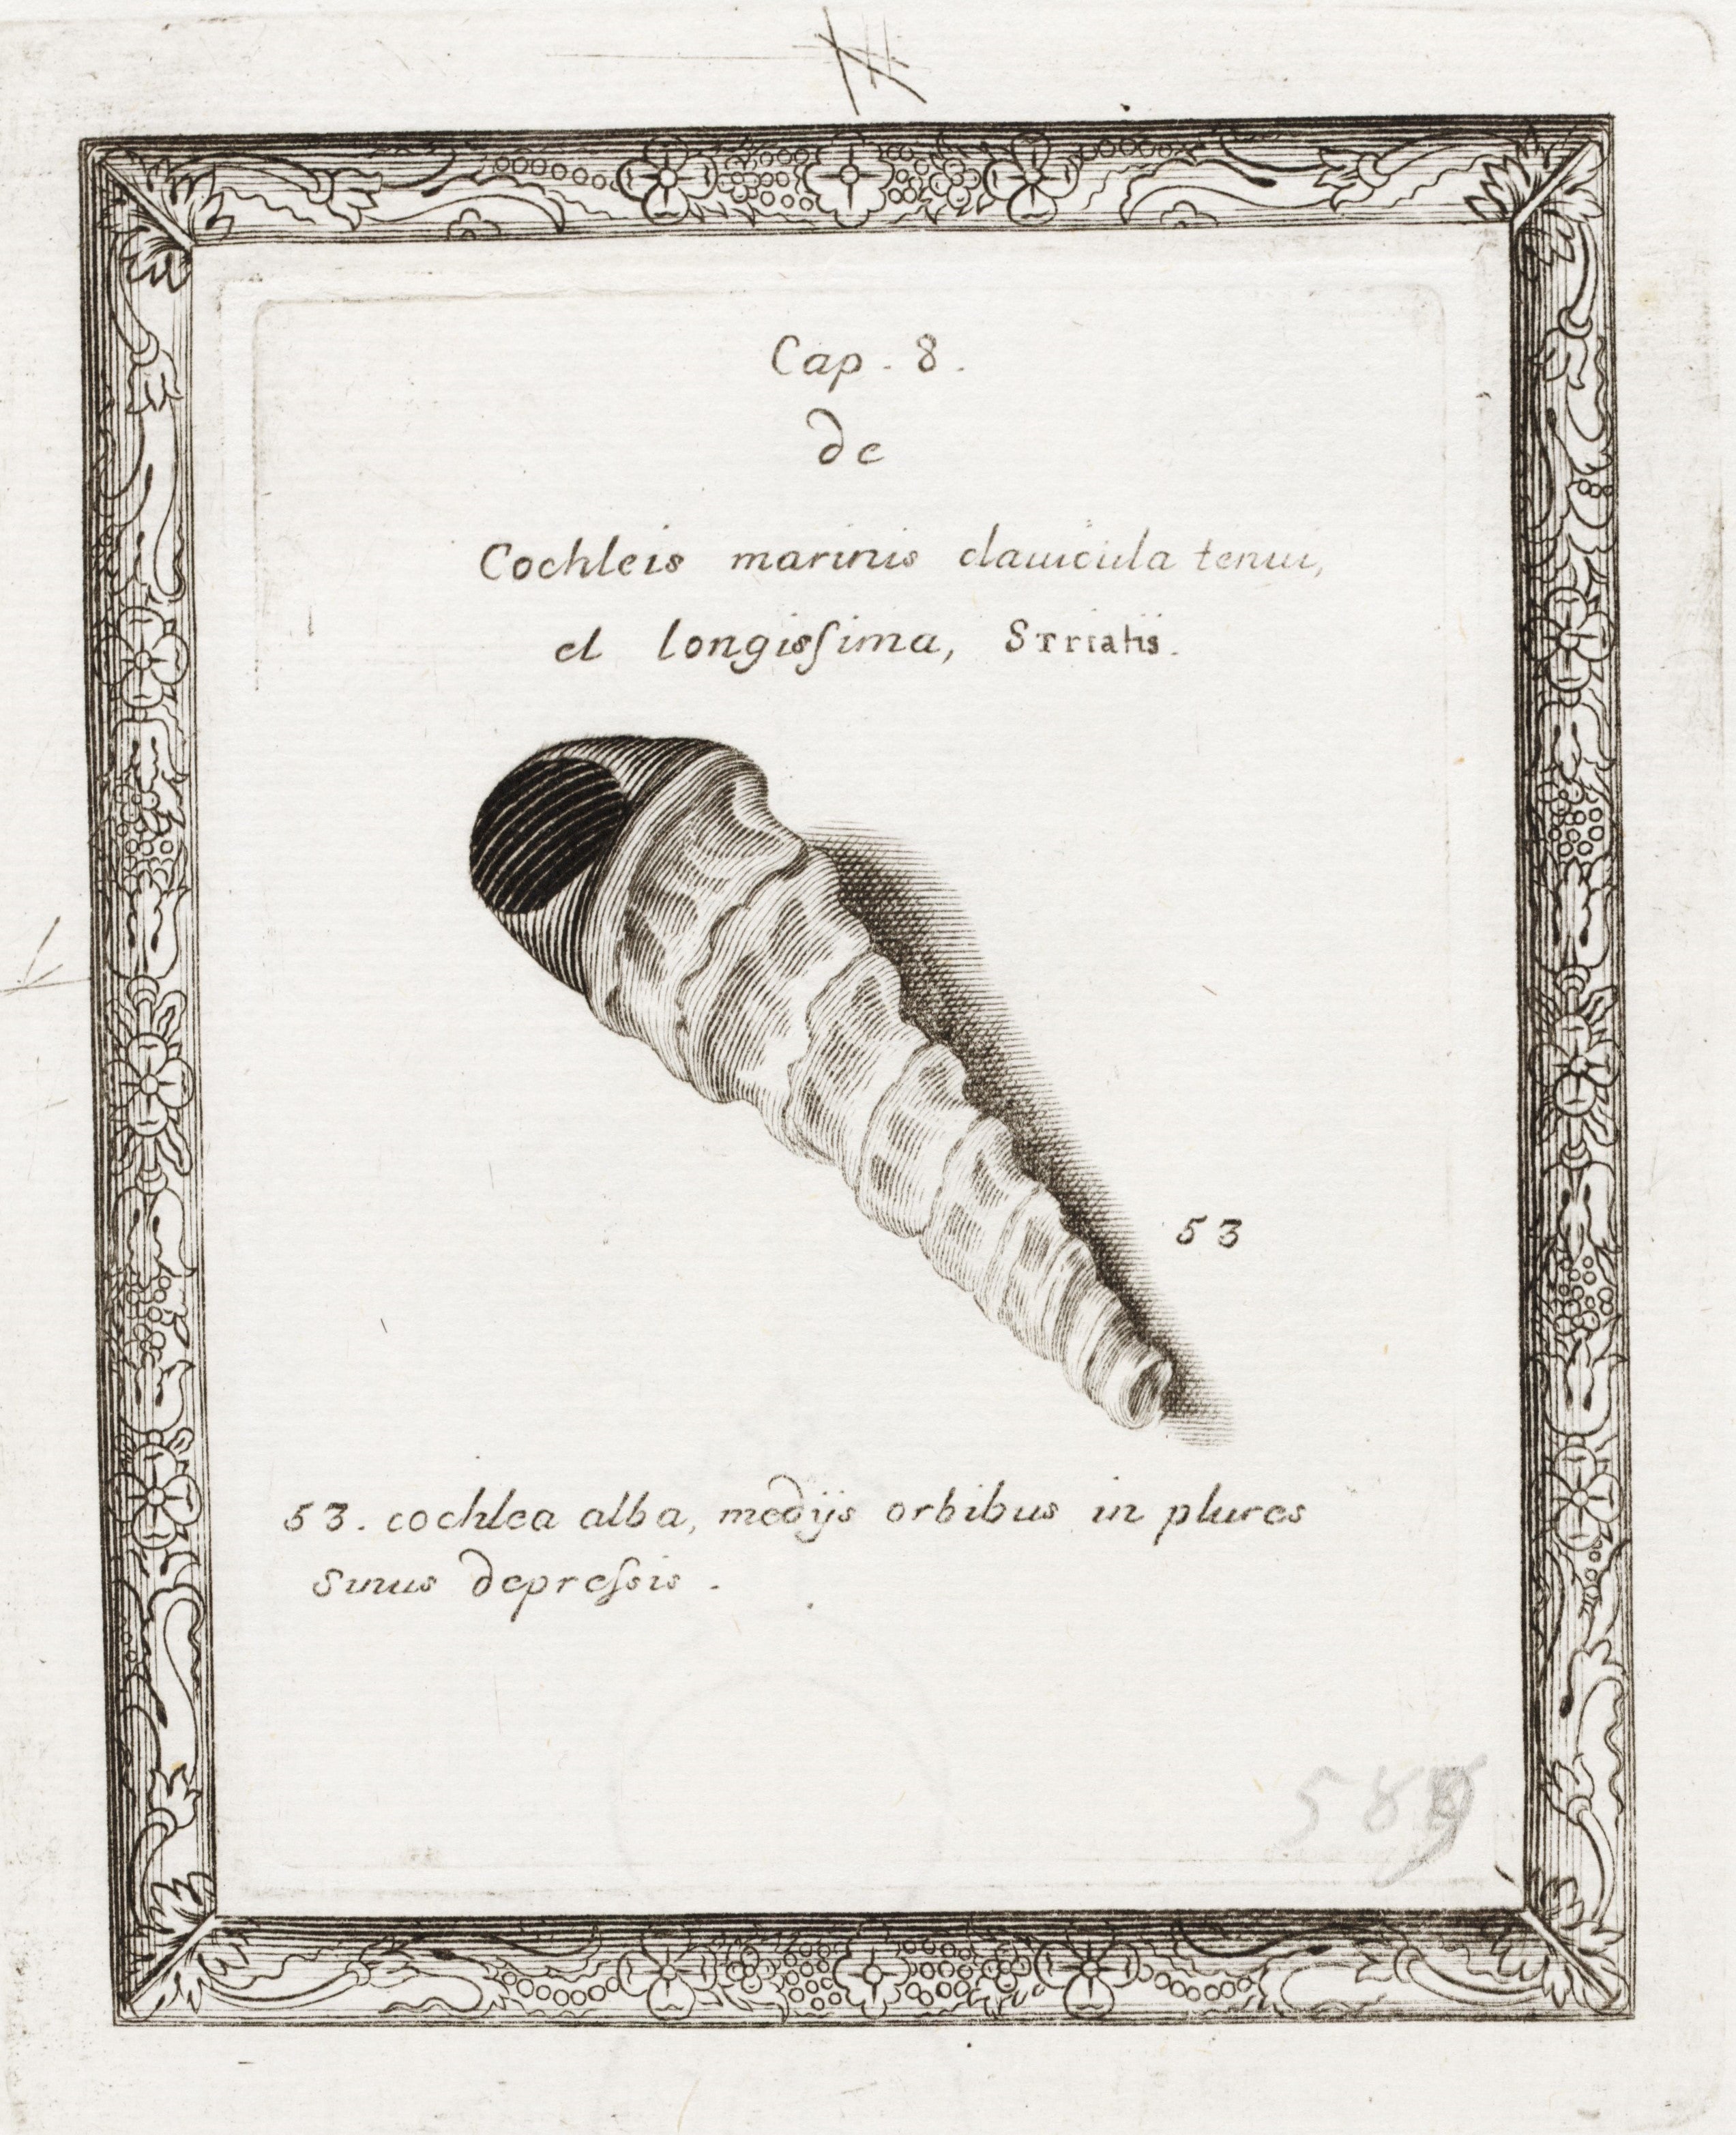 Cap. 8.
de
Cochleis marinis clauicula tenui,
et longisſima, Striatis.
53
53. cochlea alba, medijs orbibus in plures
sinus depreſsis.
589